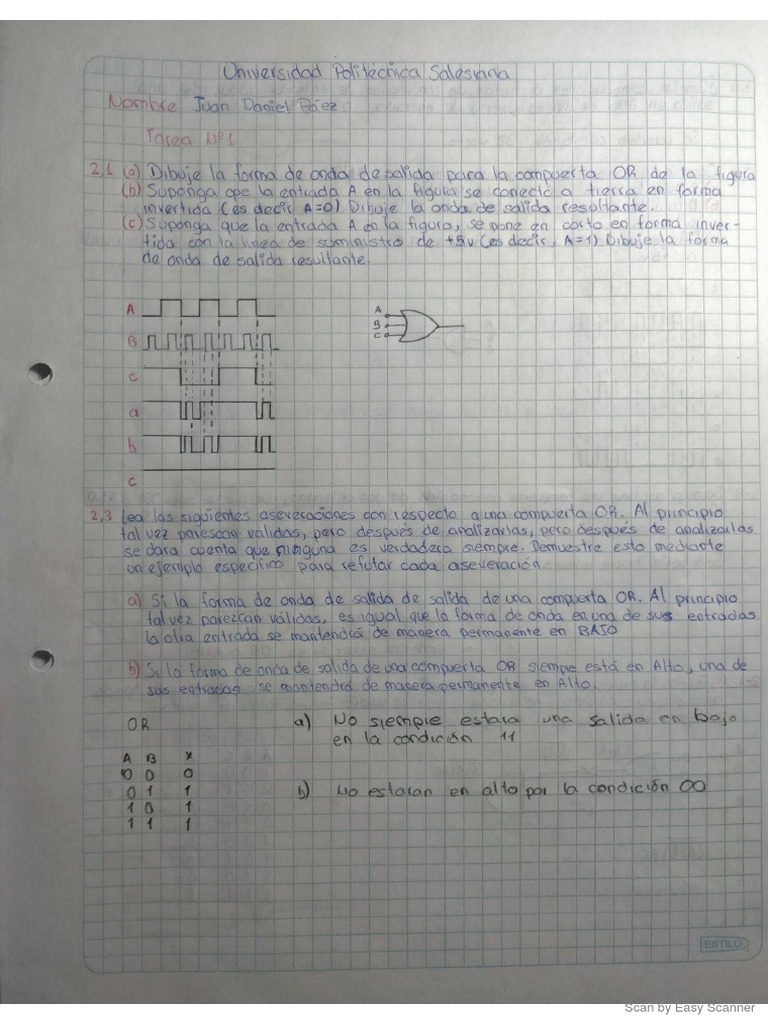 Universidad Politécnica Salesiana
Nombre Juan Daniel Báez
Tarea Nº1
2,1 (a) Dibuje la forma de onda de salida para la compuerta OR de la figura
(b) Suponga que la entrada A en la figura se conectó a tierra en forma
invertida (es decir A=0) Dibuje la onda de salida resultante.
(c) Suponga que la entrada A en la figura, se pone en corto en forma inver-
tida con la linea de suministro de +5v (es decir, A=1) Dibuje la forma
de onda de salida resultante.
A
B
c
a
b
c
A
B
C
2,3 Lea las siguientes aseveraciones con respecto a una compuerta OR. Al principio
tal vez parescan validas, pero después de analizarlas, pero después de analizarlas
se dara cuenta que ninguna es verdadera siempre. Demuestre esto mediante
un ejemplo especifico para refutar cada aseveración
a) Si la forma de onda de salida de salida de una compuerta OR. Al principio
tal vez parezcan válidas, es igual que la forma de onda en una de sus entradas
la otra entrada se mantendrá de manera permanente en BAJO
b) Si la forma de onca de salida de una compuerta OR siempre está en Alto, una de
sus entradas se mantendrá de manera permanente en Alto.
OR
A B X
0 0 0
0 1 1
1 0 1
1 1 1
a) No siempre estara una salida en bajo
en la condición 11
b) No estaran en alto por la condición 00
ESTILO
Scan by Easy Scanner